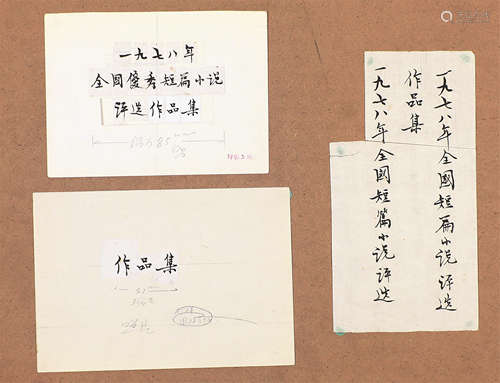 一九七八年
全國優秀短篇小说
评选作品集
作品集
一九七八年全國短篇小说评选
作品集
一九七八年全國短篇小说评选